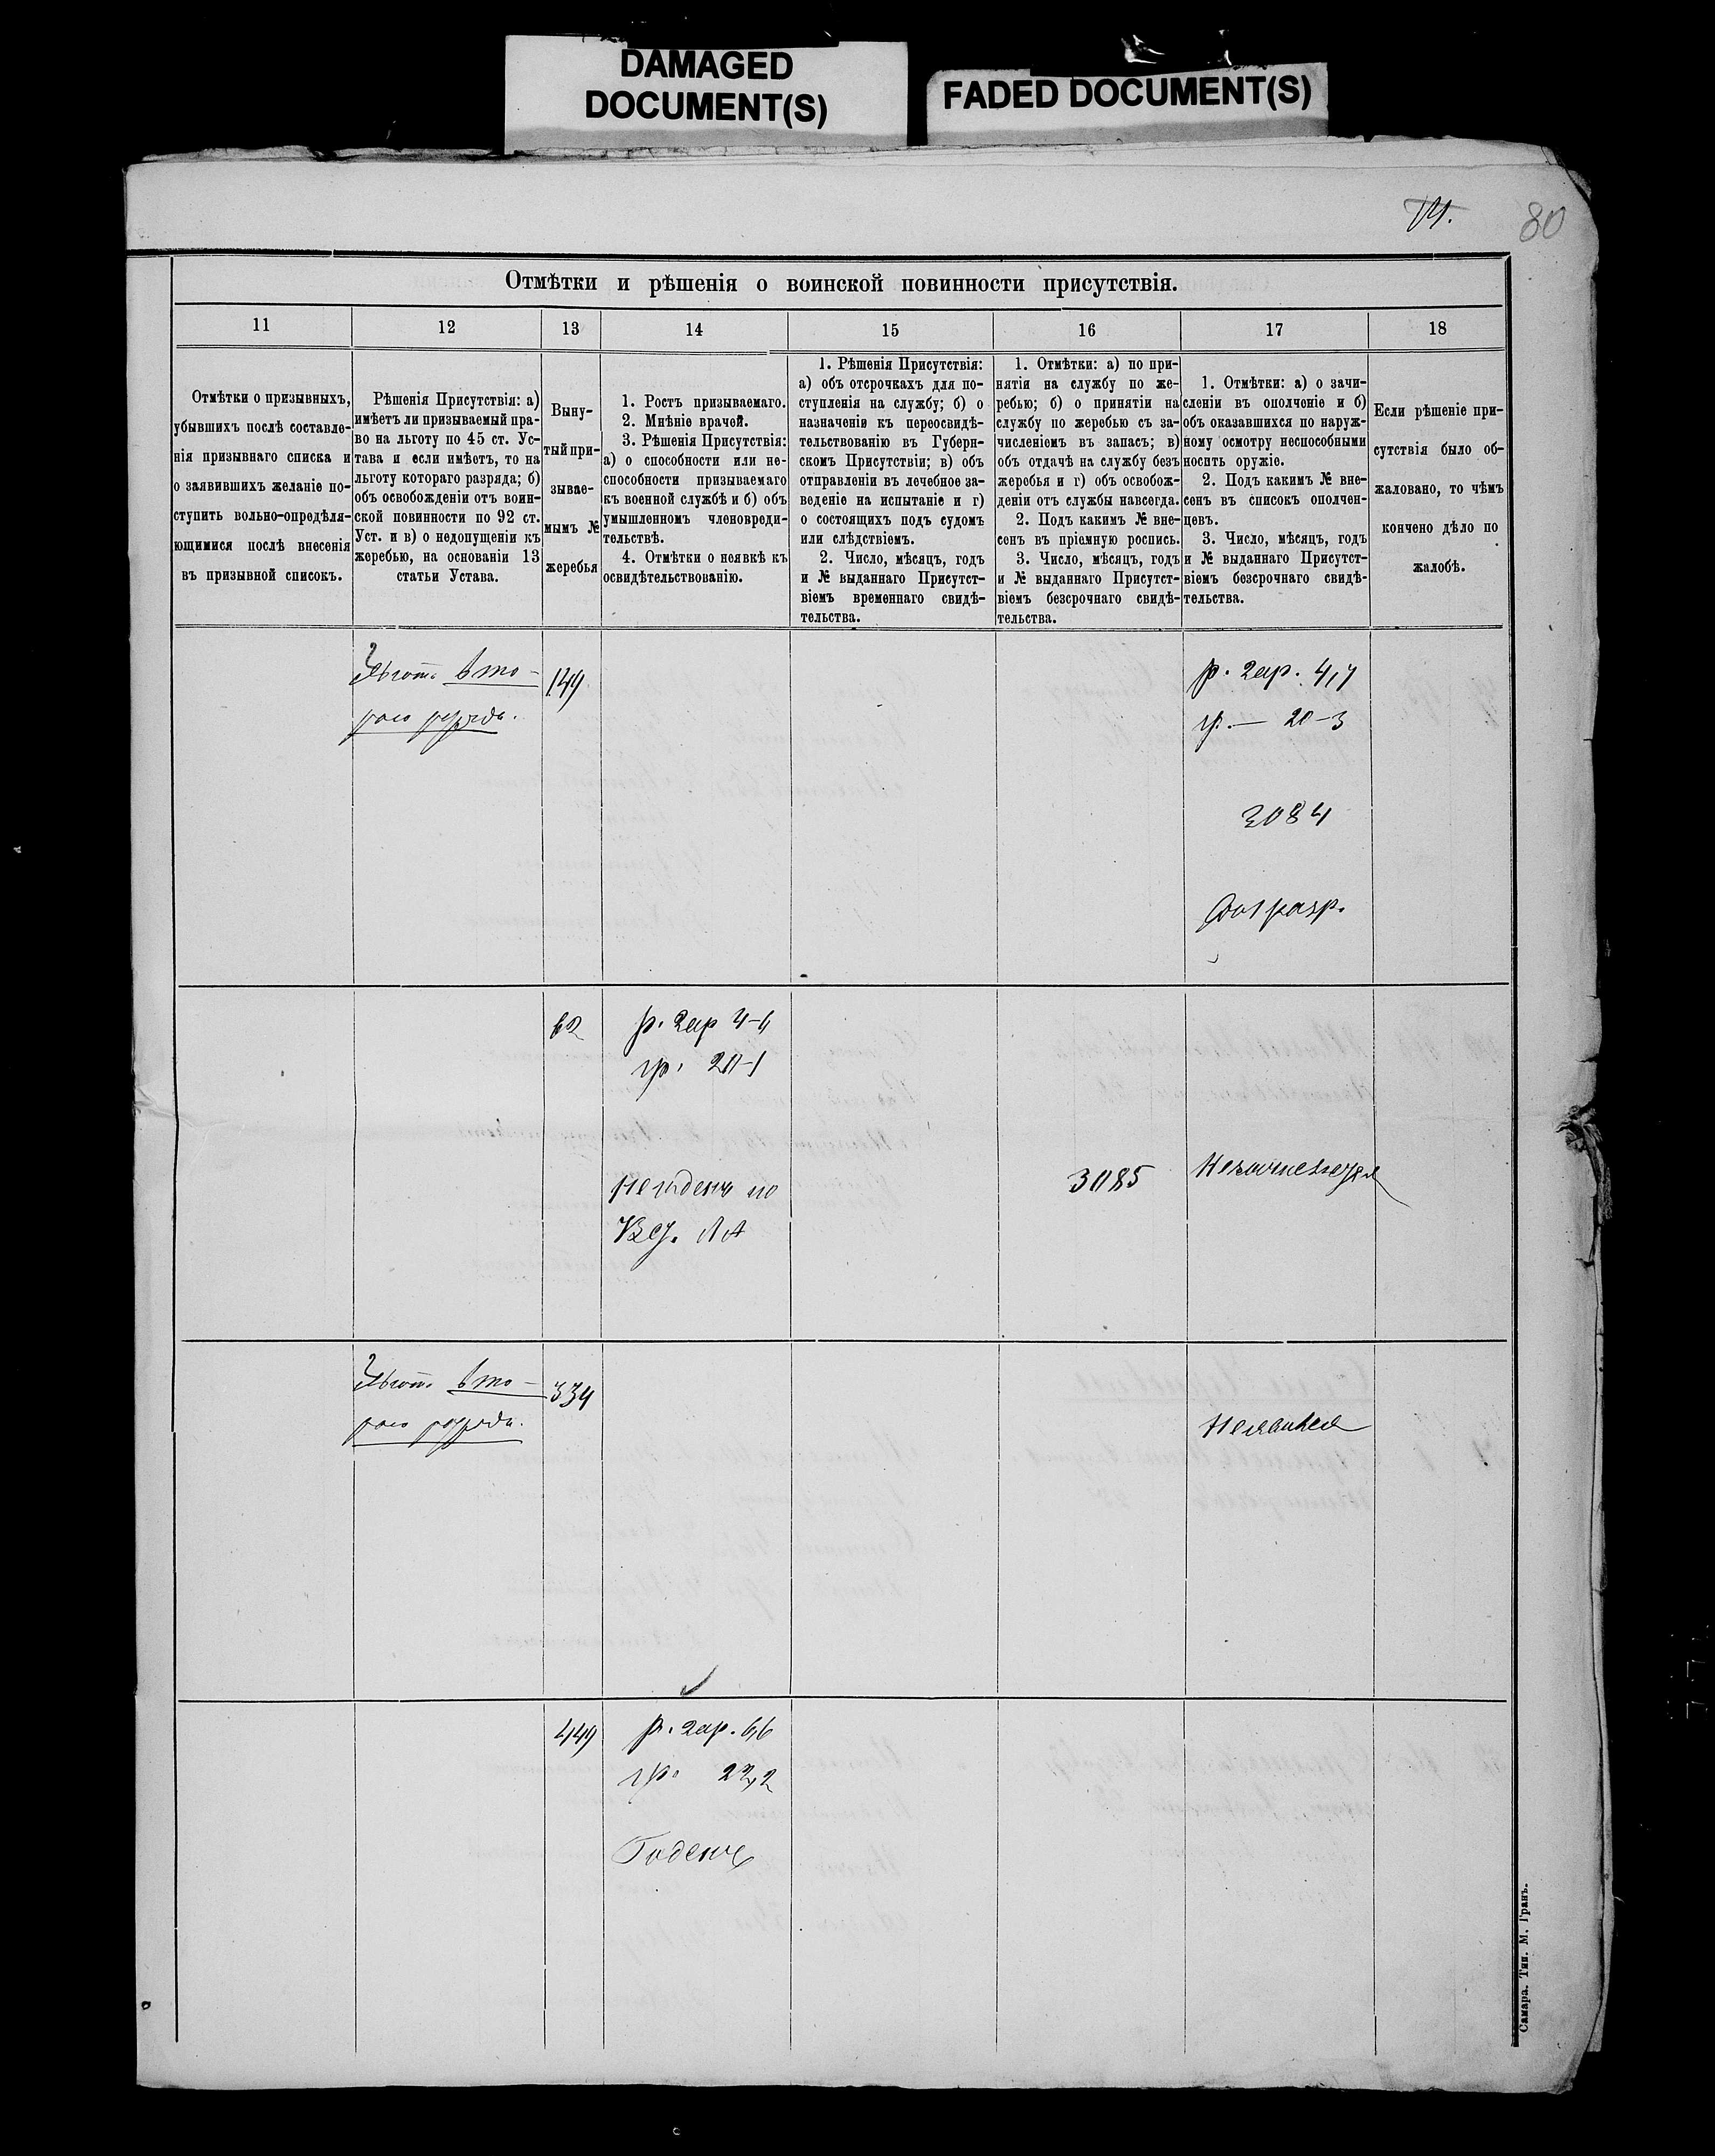 DAMAGED
DOCUMENT(S)
FADED DOCUMENT(S)
80
Отмѣтки и рѣшенія о воинской повинности присутствія.
11
12
13
14
15
16
17
18
Отмѣтки о призывныхъ,
убывшихъ послѣ составле-
нія призывнаго списка и
о заявившихъ желаніе по-
ступить вольно-опредѣля-
ющимися послѣ внесенія
въ призывной списокъ.
Рѣшенія Присутствія: а)
имѣетъ ли призываемый пра-
во на льготу по 45 ст. Ус-
тава и если имѣетъ, то на
льготу котораго разряда; б)
объ освобожденіи отъ воин-
ской повинности по 92 ст.
Уст. и в) о недопущеніи къ
жеребью, на основаніи 13
статьи Устава.
Выну-
тый при-
зывае-
мымъ №
жеребья
1. Ростъ призываемаго.
2. Мнѣніе врачей.
3. Рѣшенія Присутствія:
а) о способности или не-
способности призываемаго
къ военной службѣ и б) объ
умышленномъ членовреди-
тельствѣ.
4. Отмѣтки о неявкѣ къ
освидѣтельствованію.
1. Рѣшенія Присутствія:
а) объ отсрочкахъ для по-
ступленія на службу; б) о
назначеніи къ переосвидѣ-
тельствованію въ Губерн-
скомъ Присутствіи; в) объ
отправленіи въ лечебное за-
веденіе на испытаніе и г)
о состоящихъ подъ судомъ
или слѣдствіемъ.
2. Число, мѣсяцъ, годъ
и № выданнаго Присутст-
віемъ временнаго свидѣ-
тельства.
1. Отмѣтки: а) по при-
нятіи на службу по же-
ребью; б) о принятіи на
службу по жеребью съ за-
численіемъ въ запасъ; в)
объ отдачѣ на службу безъ
жеребья и г) объ освобож-
деніи отъ службы навсегда.
2. Подъ какимъ № вне-
сенъ въ пріемную роспись.
3. Число, мѣсяцъ, годъ
и № выданнаго Присутст-
віемъ безсрочнаго свидѣ-
тельства.
1. Отмѣтки: а) о зачи-
сленіи въ ополченіе и б)
объ оказавшихся по наруж-
ному осмотру неспособными
носить оружіе.
2. Подъ какимъ № вне-
сенъ въ списокъ ополчен-
цевъ.
3. Число, мѣсяцъ, годъ
и № выданнаго Присутст-
віемъ безсрочнаго свидѣ-
тельства.
Если рѣшеніе при-
сутствія было об-
жаловано, то чѣмъ
кончено дѣло по
жалобѣ.
Льгота вто-
раго разряда.
149
р. 2ар. 4,7
гр. — 20-3
3084
разр.
62
р. 2ар 4-4
гр. 20-1
Негоденъ по
3085
Незачисляется
Льгота вто-
раго разряда.
334
Неявился
449
р. 2ар. 6,6
гр. 22,2
Годенъ
Самара. Тип. М. Гранъ.